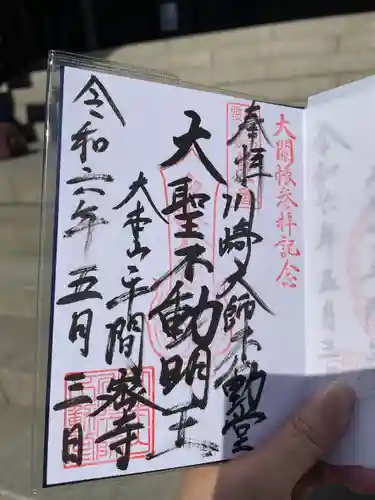 大開帳参拝記念
奉拝
川崎大師不動堂
大聖不動明王
大本山平間寺
令和六年五月三日